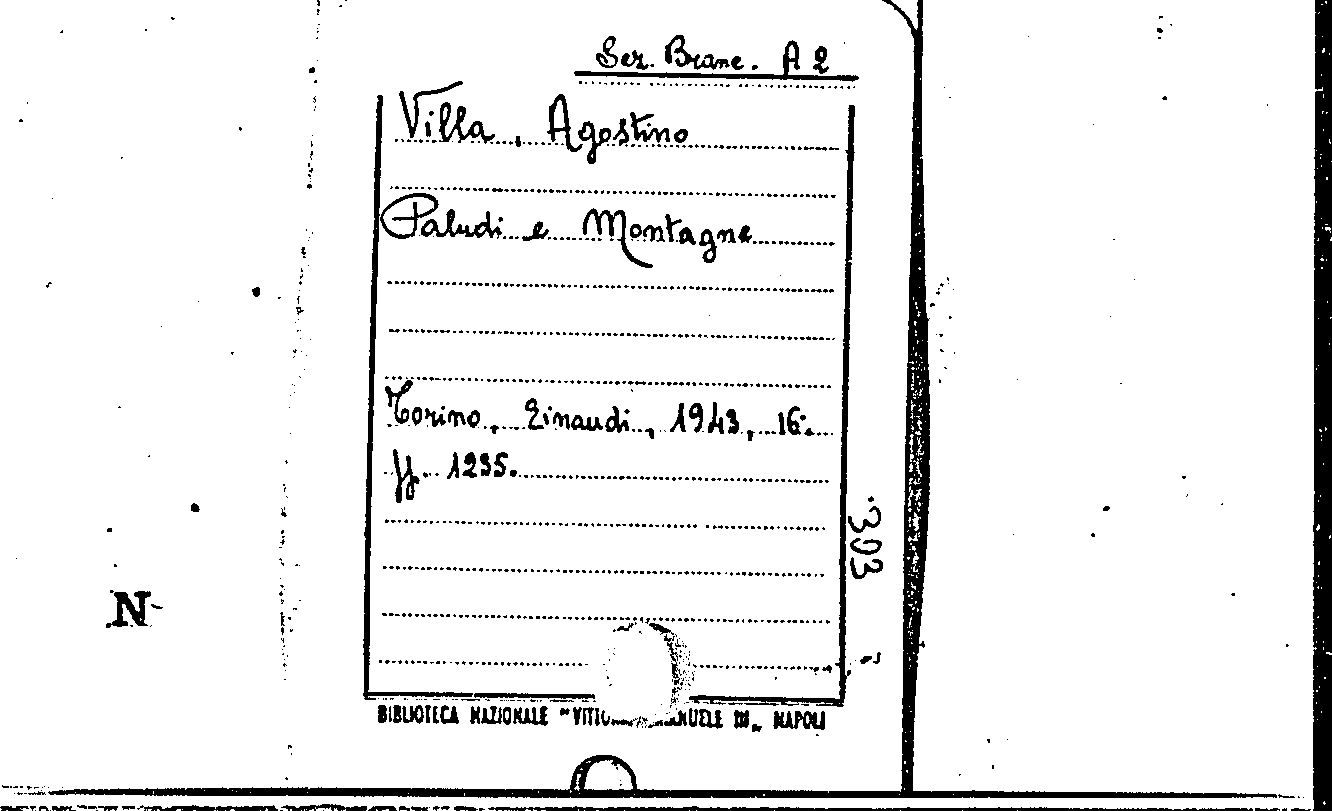 Sez. Branc. A 2
Villa, Agostino
Paludi e Montagne
Torino, Einaudi, 1943, 16°.
ff. 1235.
303
N
BIBLIOTECA NAZIONALE "VITTO MANUELE III„ NAPOLI